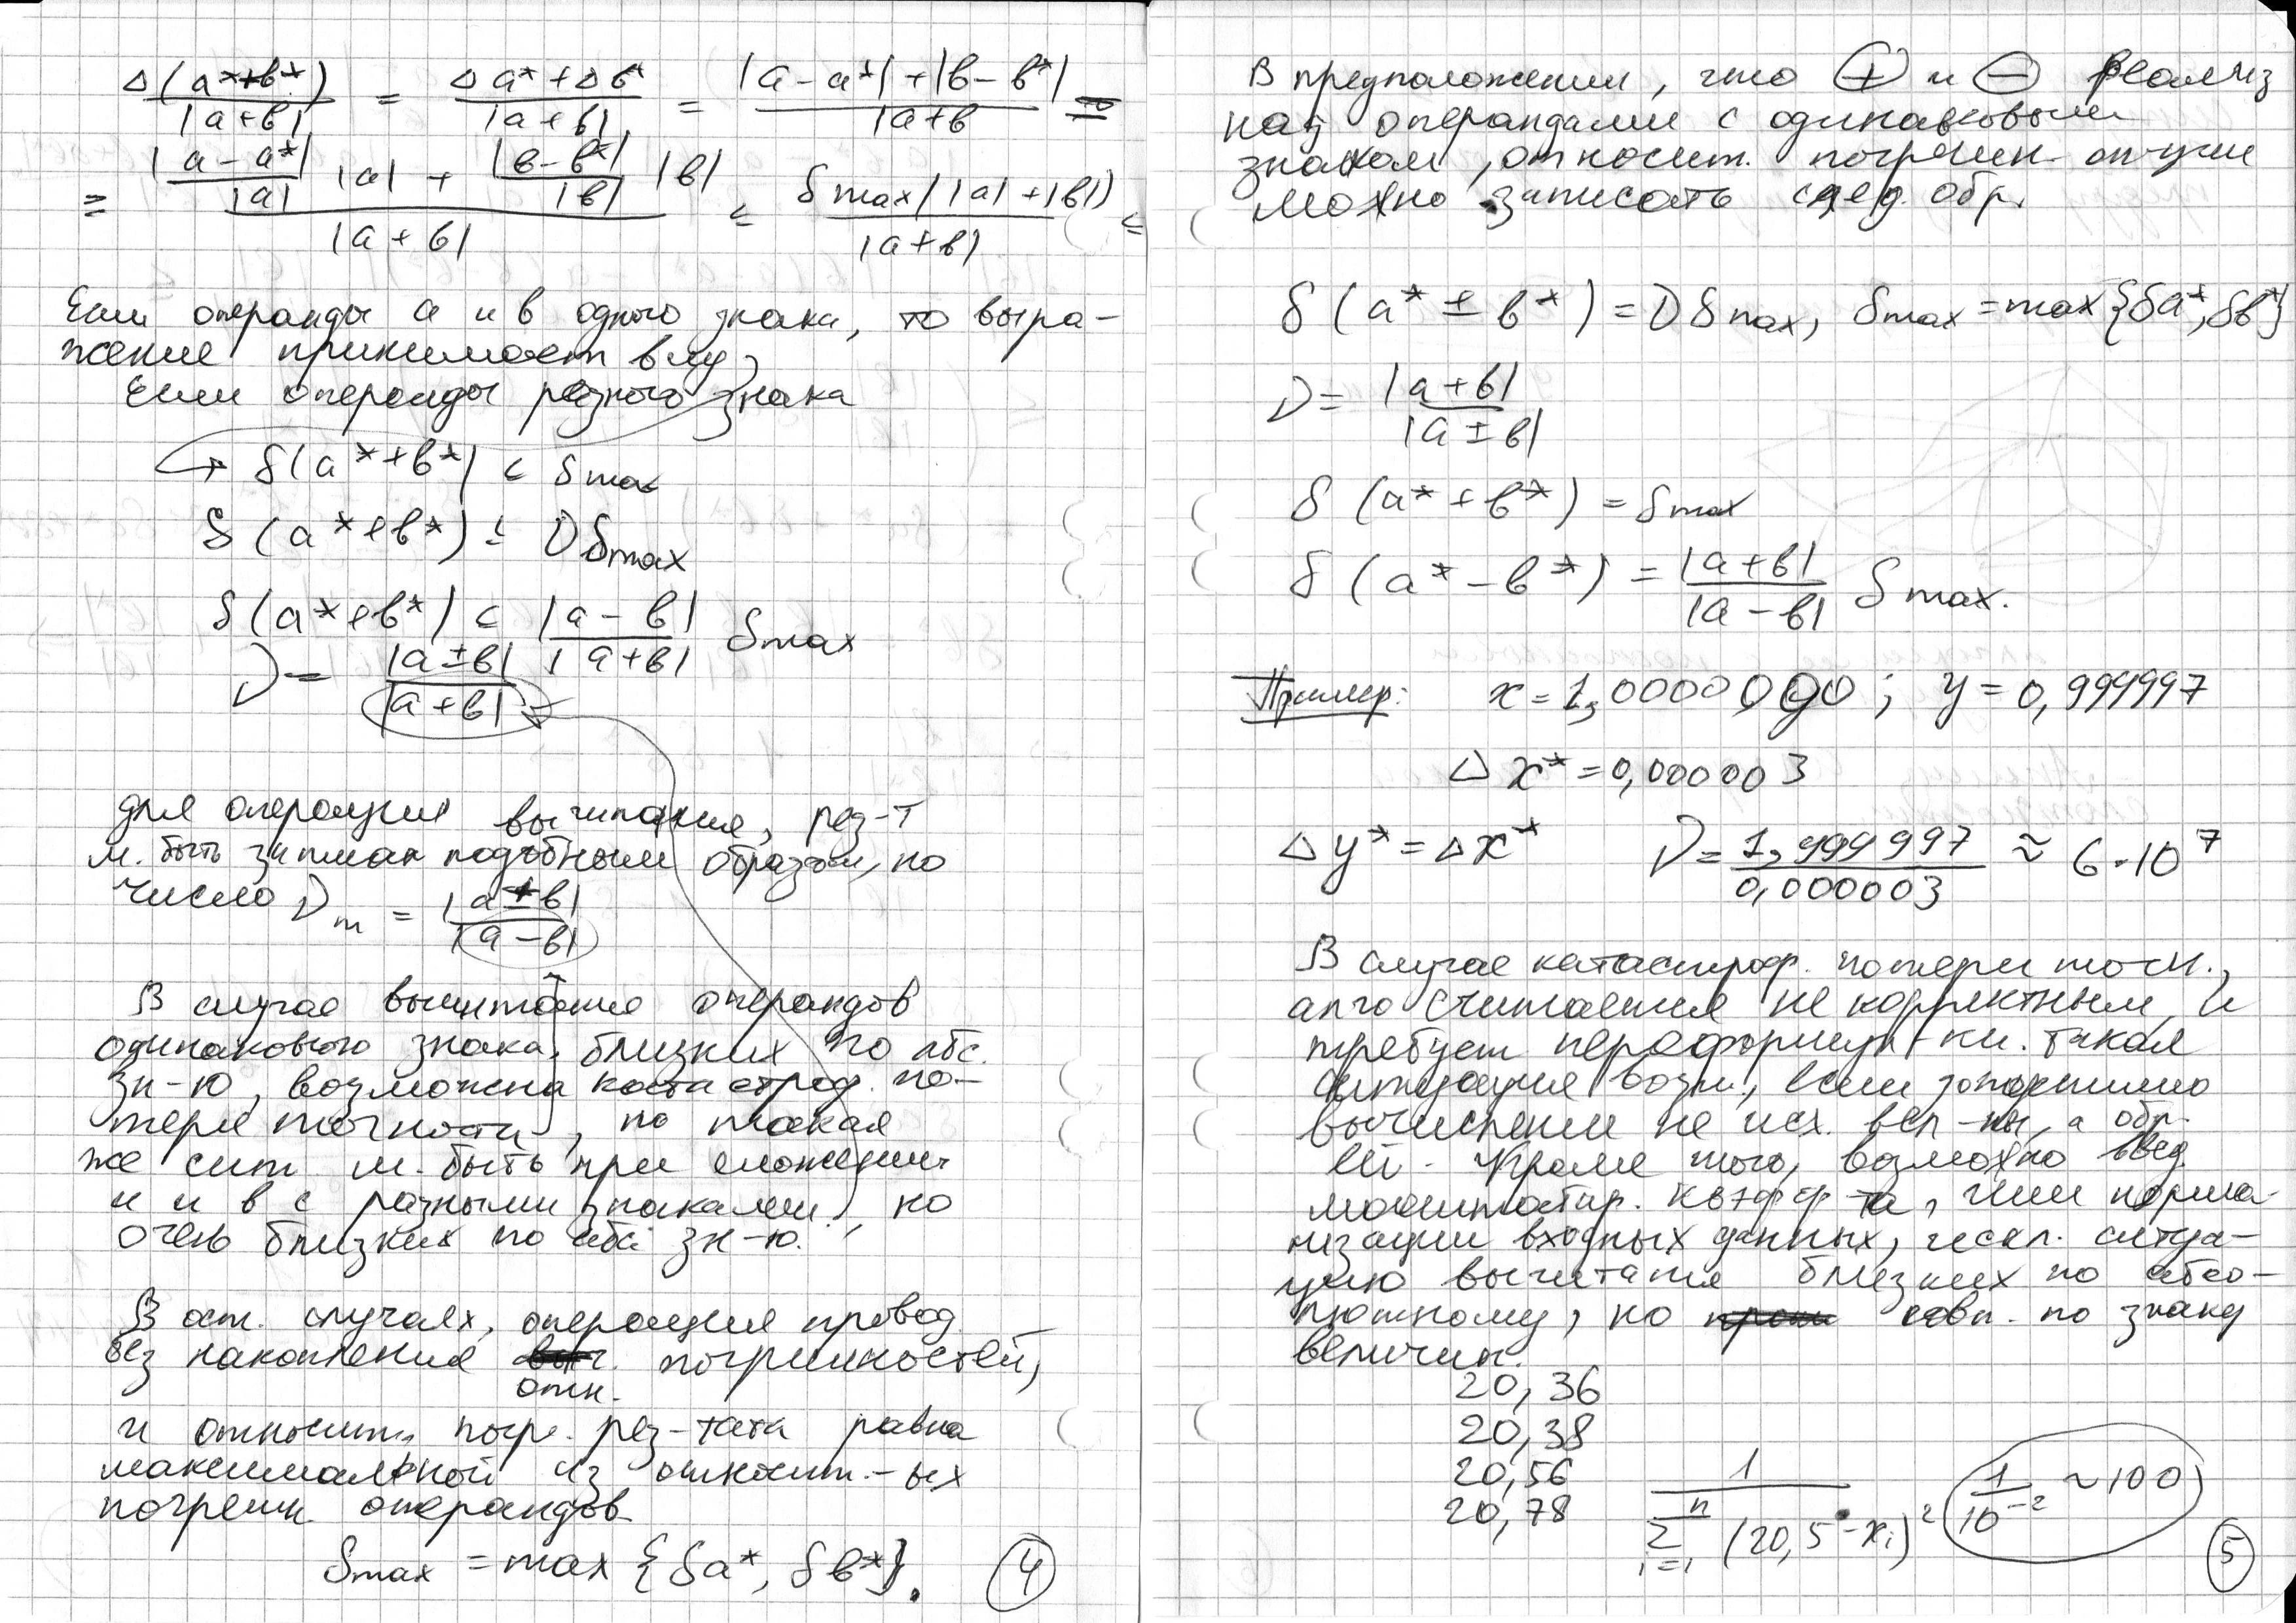 Δ(a*+b*) / |a+b| = Δa*+Δb* / |a+b| = |a-a*|+|b-b*| / |a+b =
= |a-a*|/|a| |a| + |b-b*|/|b| |b| / |a+b| ≤ δmax(|a|+|b|) / |a+b| ≤
Если операнды a и b одного знака, то выра-
жение принимает вид
Если операнды разного знака
→ δ(a*+b*) ≤ δmax
δ(a*+b*) ≤ νδmax
δ(a*+b*) ≤ |a-b| / |a+b| δmax
ν = |a±b| / |a+b|
для операции вычитания, рез-т
м. быть записан подобным образом, но
число ν_m = |a±b| / |a-b|
В случае вычитание операндов
одинакового знака, близких по абс.
зн-ю, возможна катастроф. по-
теря точности, но такая
же сит м. быть при сложении
и b с разными знаками, но
очень близких по абс зн-ю.
В ост. случаях, операция провод.
без накопления погрешностей,
отн.
и относит. погр. рез-тата равна
максимальной из относит.-ых
погрешн. операндов
δmax = max {δa*, δb*}.
4
В предположении, что ⊕ и ⊖ реализ
над операндами с одинаковыми
знаком, относит. погрешн.
можно записать след. обр.
δ(a* ± b*) = νδmax, δmax = max{δa*, δb*}
ν = |a+b| / |a±b|
δ(a*+b*) = δmax
δ(a*-b*) = |a+b| / |a-b| δmax.
Пример: x = 1,0000000; y = 0,999997
Δx* = 0,000003
Δy* = Δx* ν = 1,999997 / 0,000003 ≈ 6·10^7
В случае катастроф. потери точн.,
алго считается не корректным и
требует переформул-ки. такая
ситуация возн., если
вычислении не исх. вел-ны, а обр.
ей. Кроме того, возможно введ
масштабир. коэфф-та, или норма-
лизации входных данных, искл. ситуа-
цию вычитания близких по абсо-
лютному, но совп. по знаку
величин.
20,36
20,38
20,56
20,78
1 / Σ_{i=1}^{n} (20,5 - x_i)^2
1 / 10^-2 ~ 100
5